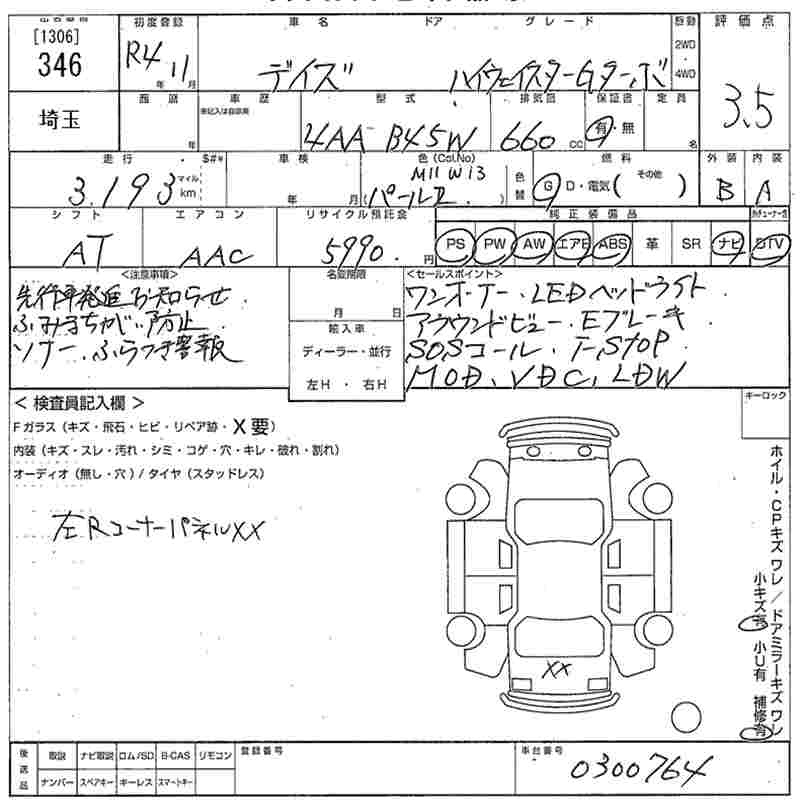 [1306]
346
埼玉
初度登録 車名 ドア グレード 駆動 評価点
R4年 11月 デイズ ハイウェイスターGターボ 2WD 4WD 3.5
西暦 車歴 型式 排気量 保証書 定員
年 未記入は自家用 4AA B45W 660cc 有・無 名
走行 $#* 車検 色(Col.No) 色替 燃料 外装 内装
3.193 マイル km 年 月 M11 W13 (パールII) G D・電気( その他 ) B A
シフト エアコン リサイクル預託金 純正装備品
AT AAC 5990.円 PS PW AW エアB ABS 革 SR ナビ DTV
<注意事項> 名変期限 <セールスポイント>
先行車発進お知らせ. 月 日 ワンオーナー. LEDヘッドライト
ふみまちがい防止 輸入車 アラウンドビュー. Eブレーキ
ソナー. ふらつき警報 ディーラー・並行 SOSコール.
左H・右H MOD、VDC、LDW
<検査員記入欄> キーロック
Fガラス(キズ・飛石・ヒビ・リペア跡・X要)
内装(キズ・スレ・汚れ・シミ・コゲ・穴・キレ・破れ・割れ)
オーディオ(無し・穴)/タイヤ(スタッドレス)
左Rコーナーパネルxx
xx
ホイル・CPキズワレ/ドアミラーキズワレ
小キズ有 小U有 補修有
後送品 取説 ナビ取説 ロム/SD B-CAS リモコン 登録番号 車台番号
ナンバー スペアキー キーレス スマートキー 0300764